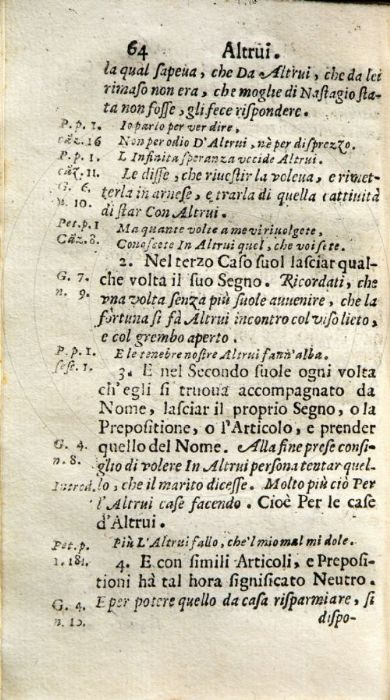 64 Altrui.
la qual sapeua, che Da Altrui, che da lei
rimaso non era, che moglie di Nastagio sta-
ta non fosse, gli fece rispondere.
P.p. 1. Io parlo per ver dire,
cãz. 16 Non per odio D'Altrui, nè per disprezzo.
P.p. 1. L Infinita speranza vccide Altrui.
cãz. 11. Le disse, che riuestir la voleua, e rimet-
G. 6. terla in arnese, e trarla di quella cattiuità
n. 10. di star Con Altrui.
Pet.p. 1 Ma quante volte a me vi riuolgete,
Cãz. 8. Conoscete In Altrui quel, che voi sete.
2. Nel terzo Caso suol lasciar qual-
G. 7. che volta il suo Segno. Ricordati, che
n. 9. vna volta senza più suole auuenire, che la
fortuna si fà Altrui incontro col viso lieto,
e col grembo aperto.
P.p. 1. E le tenebre nostre Altrui fann'alba.
sest. 1. 3. E nel Secondo suole ogni volta
ch'egli si truoua accompagnato da
Nome, lasciar il proprio Segno, o la
Prepositione, o l'Articolo, e prender
G. 4. quello del Nome. Alla fine prese consi-
n. 8. glio di volere In Altrui persona tentar quel-
Introd. lo, che il marito dicesse. Molto più ciò Per
l'Altrui case facendo. Cioè Per le case
d'Altrui.
Pet.p. Più L'Altrui fallo, che'l mio mal mi dole.
1. 181. 4. E con simili Articoli, e Preposi-
tioni hà tal hora significato Neutro.
G. 4. E per potere quello da casa risparmiare, si
n. 10. dispo-